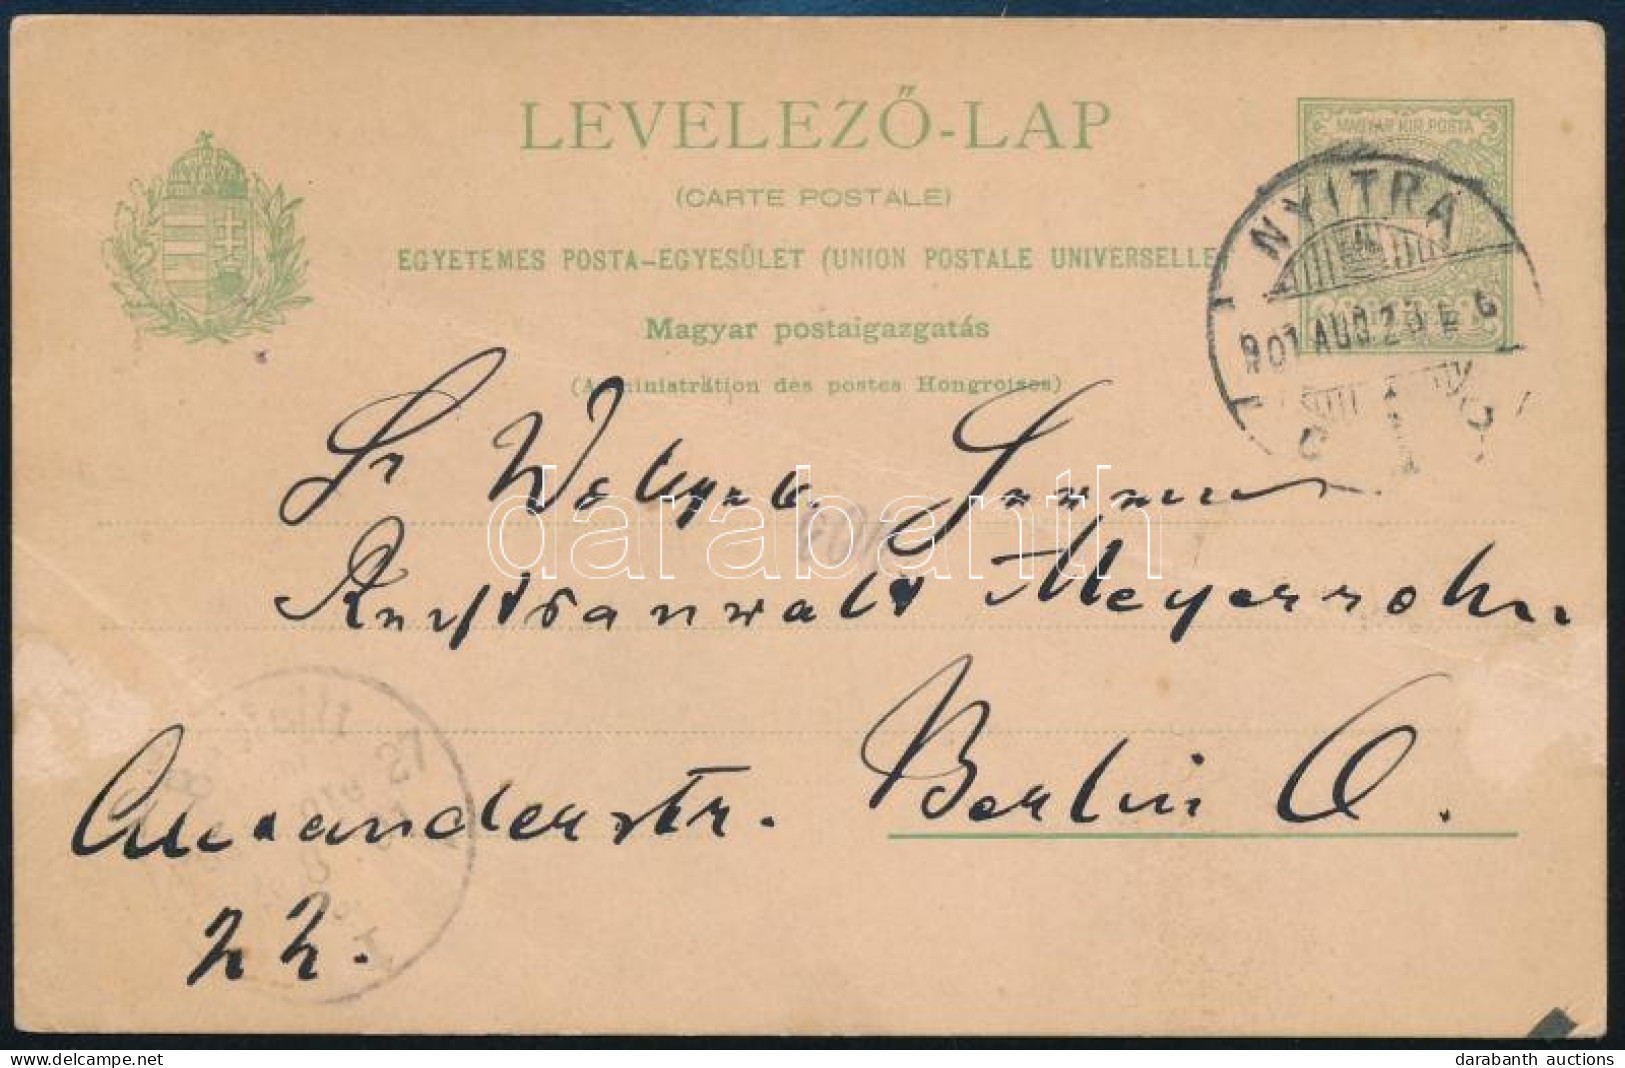 LEVELEZŐ-LAP
MAGYAR KIR. POSTA
(CARTE POSTALE)
NYITRA
EGYETEMES POSTA-EGYESÜLET (UNION POSTALE UNIVERSELLE
Magyar postaigazgatás
901 AUG 23
(Administration des postes Hongroises)
Sr
darabanth
Rechtsanwalt Meyersohn
Alexanderstr. Berlin O.
22.
delcampe.net
darabanth auctions